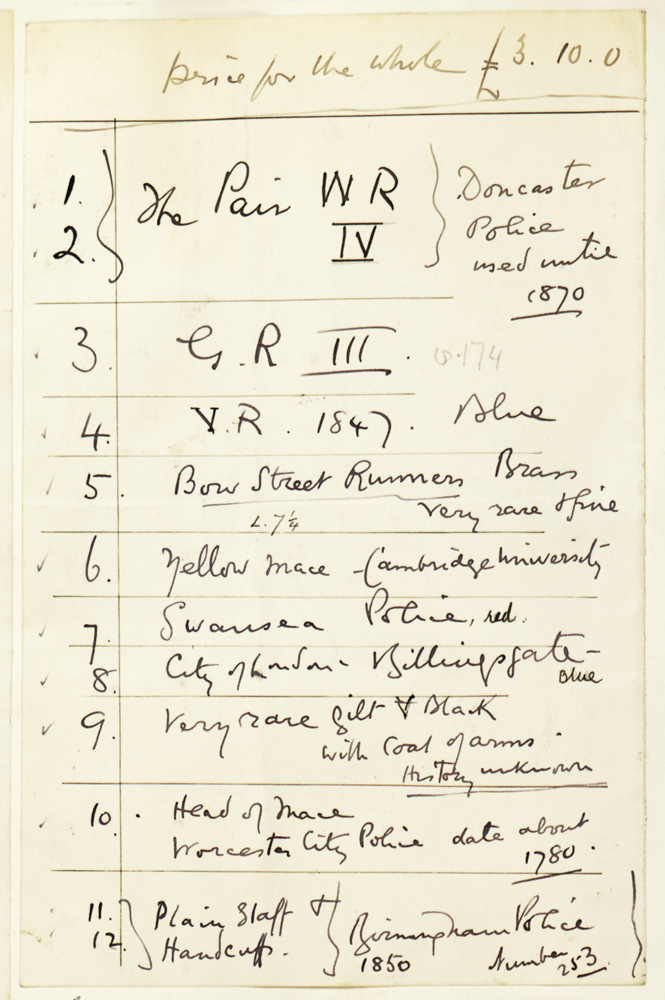 price for the whole £3. 10. 0
1. The Pair W R Doncaster
2. IV Police
used until
1870
3. G. R III.
4. V. R. 1847. Blue
5. Bow Street Runners Brass
L. 7¼ Very rare & fine
6. Yellow mace - Cambridge University
7. Swansea Police, red.
8. City of London - Billingsgate -
Blue
9. Very rare gilt & Black
with Coat of arms.
History unknown
10. Head of Mace
Worcester City Police date about
1780.
11. Plain Staff & Birmingham Police
12. Handcuffs. 1850 Number 253